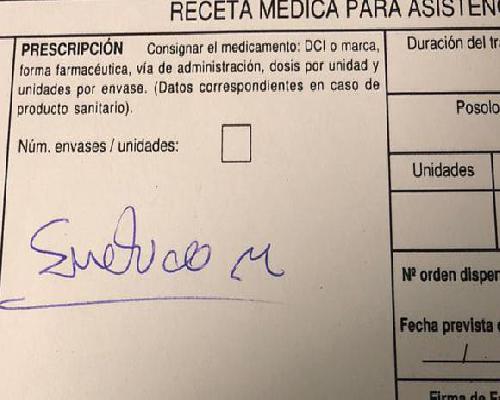 RECETA MÉDICA PARA ASISTENC
PRESCRIPCIÓN Consignar el medicamento: DCI o marca,
forma farmacéutica, vía de administración, dosis por unidad y
unidades por envase. (Datos correspondientes en caso de
producto sanitario).
Núm. envases / unidades:
Duración del tra
Posolo
Unidades
Nº orden dispen
Fecha prevista d
/
Firma de F